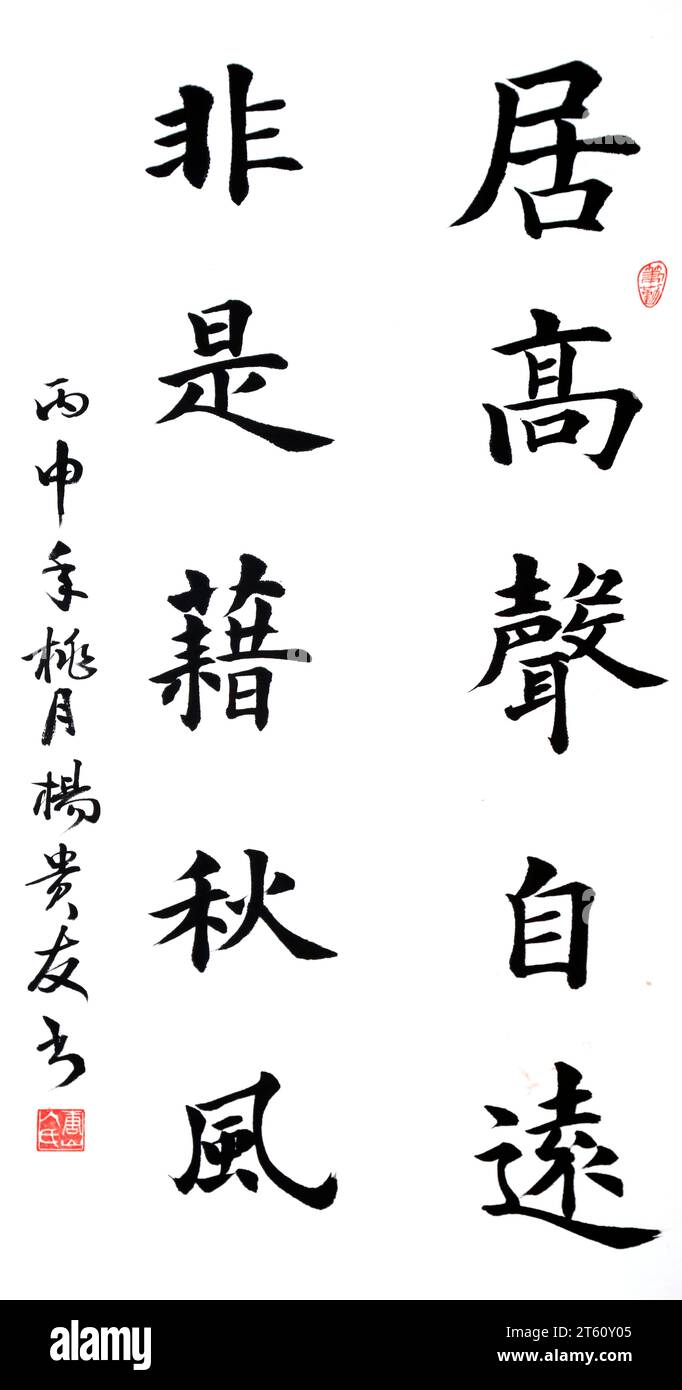 居高聲自遠
非是藉秋風
丙申年桃月楊貴友书
alamy
Image ID: 2T60Y05
www.alamy.com